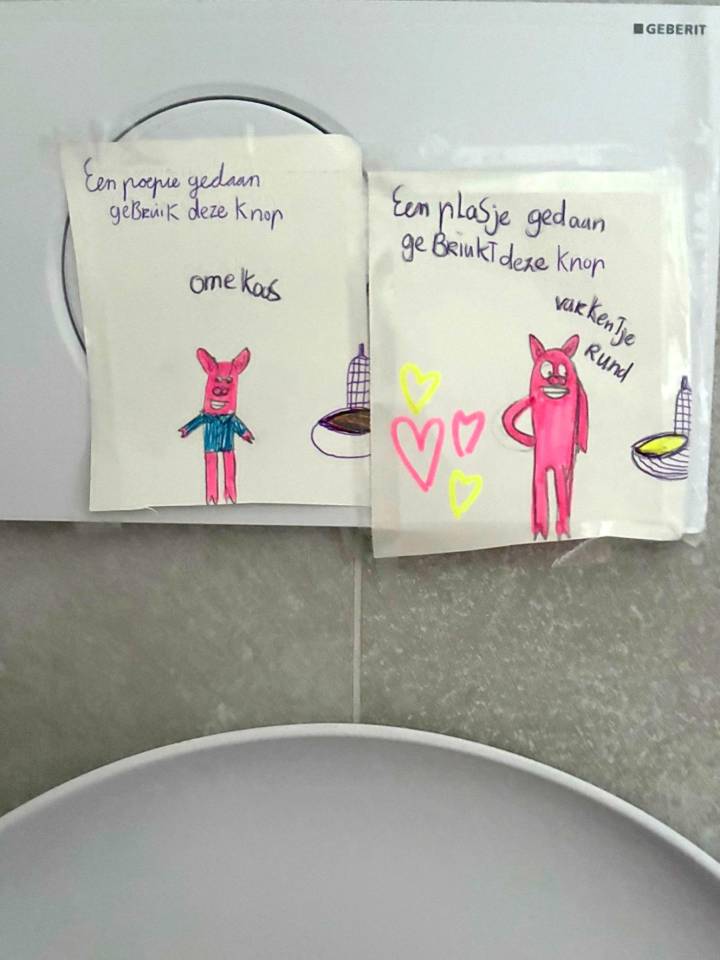 GEBERIT
Een poepie gedaan
geBruik deze Knop
ome Koos
Een plasje gedaan
ge BriuKT deze Knop
varKenTje
Rund